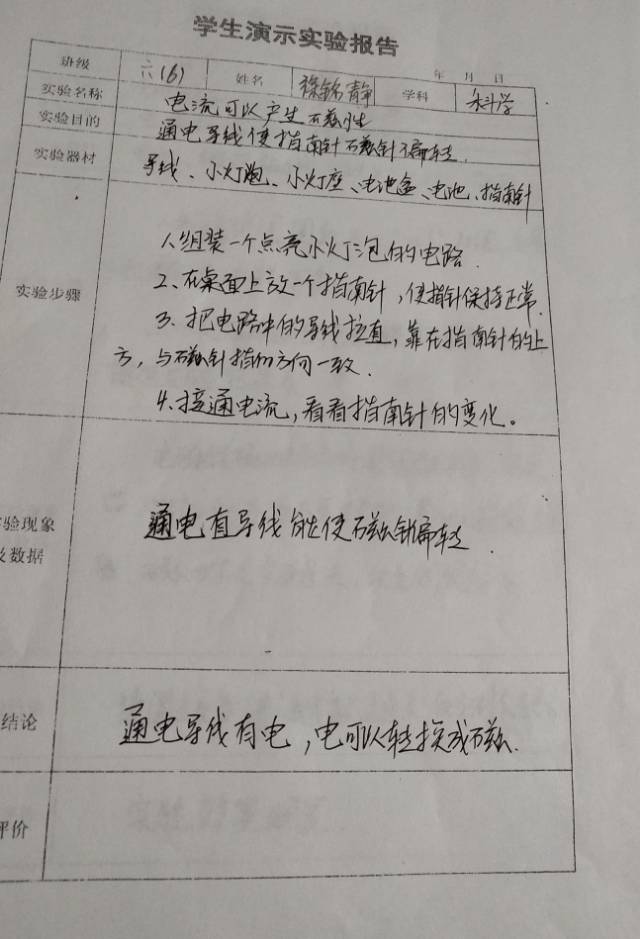 学生演示实验报告
年 月 日
班级 六(6) 姓名 徐锦静 学科 科学
实验名称 电流可以产生磁性
实验目的 通电导线使指南针磁针偏转.
实验器材 导线、小灯炮、小灯座、电池盒、电池、指南针
实验步骤
1.组装一个点亮小灯泡的电路.
2、在桌面上放一个指南针,使指针保持正常.
3、把电路中的导线拉直,靠在指南针的上
方,与磁针指的方向一致.
4、接通电流,看看指南针的变化。
验现象
及数据
通电直导线能使磁针偏转.
结论
通电导线有电,电可以转换成磁.
评价